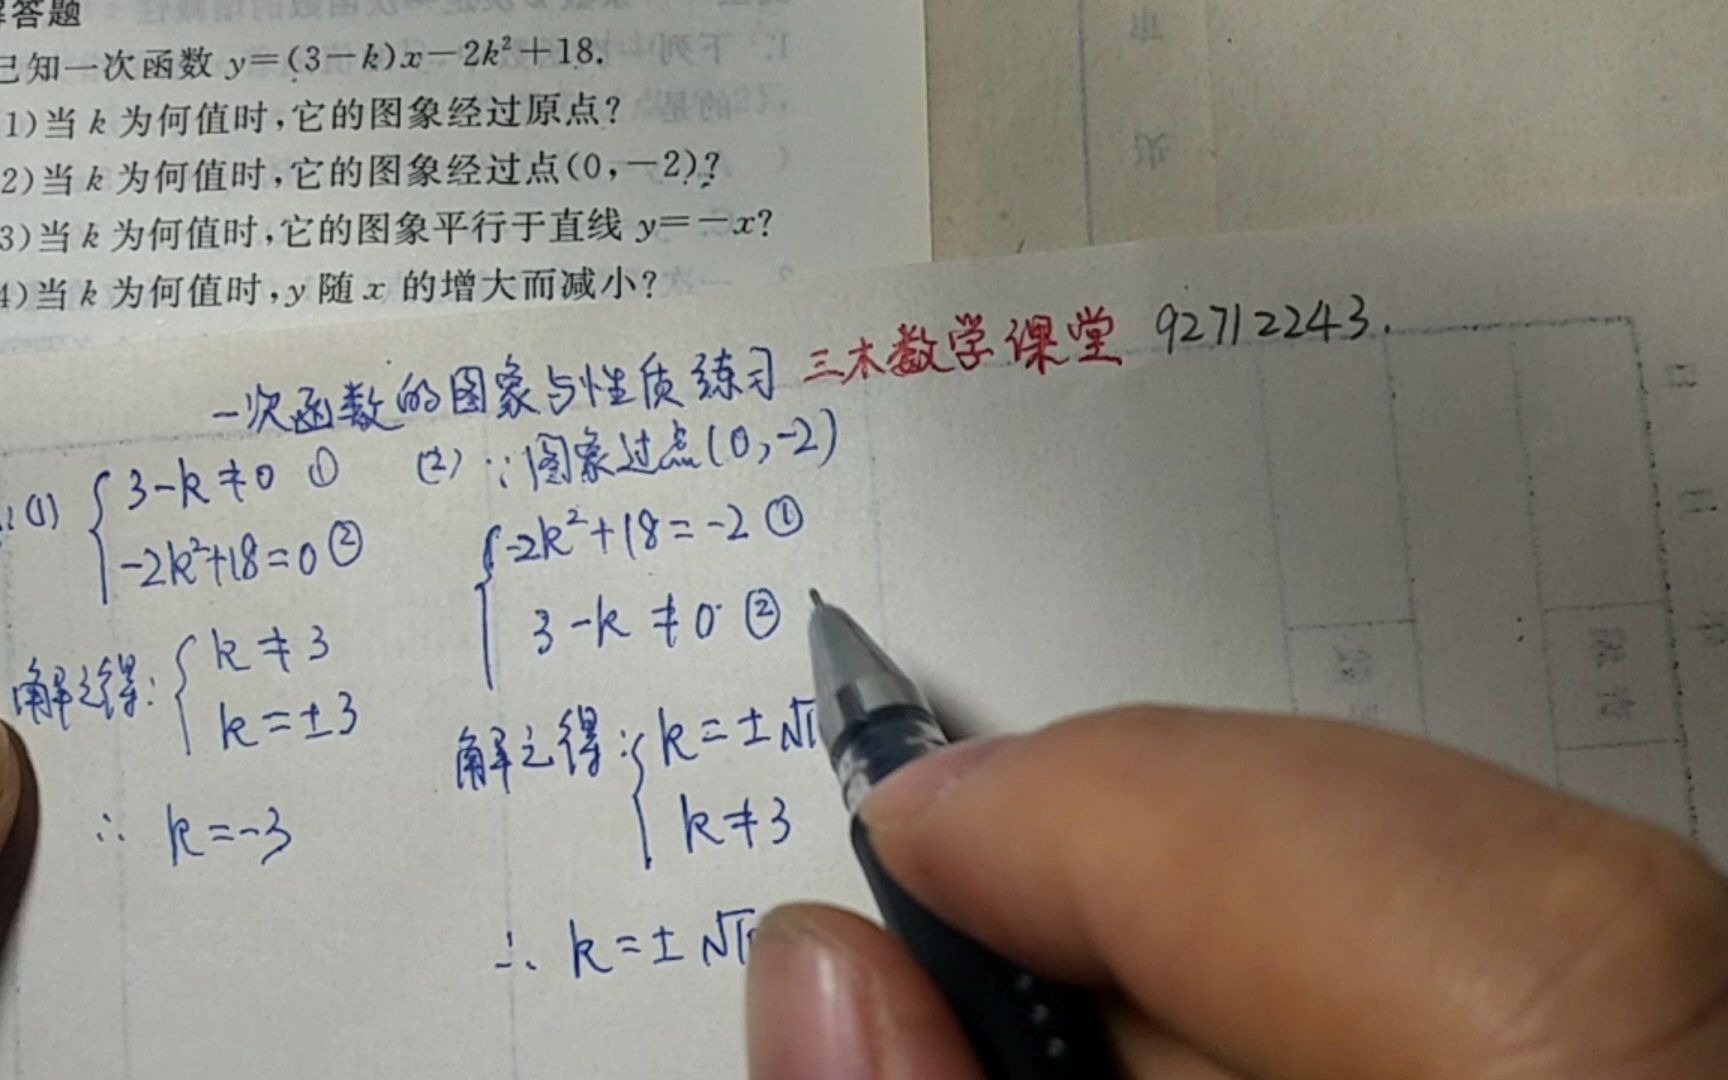 解答题
已知一次函数 y=(3-k)x-2k²+18.
1)当 k 为何值时,它的图象经过原点?
2)当 k 为何值时,它的图象经过点(0,-2)?
3)当 k 为何值时,它的图象平行于直线 y=-x?
4)当 k 为何值时,y 随 x 的增大而减小?
一次函数的图象与性质练习 三木数学课堂 92712243.
(1) { 3-k≠0 ①
-2k²+18=0 ②
解之得: { k≠3
k=±3
∴ k=-3
(2) ∵图象过点(0,-2)
{ -2k²+18=-2 ①
3-k≠0 ②
解之得: { k=±√1
k≠3
∴ k=±√1